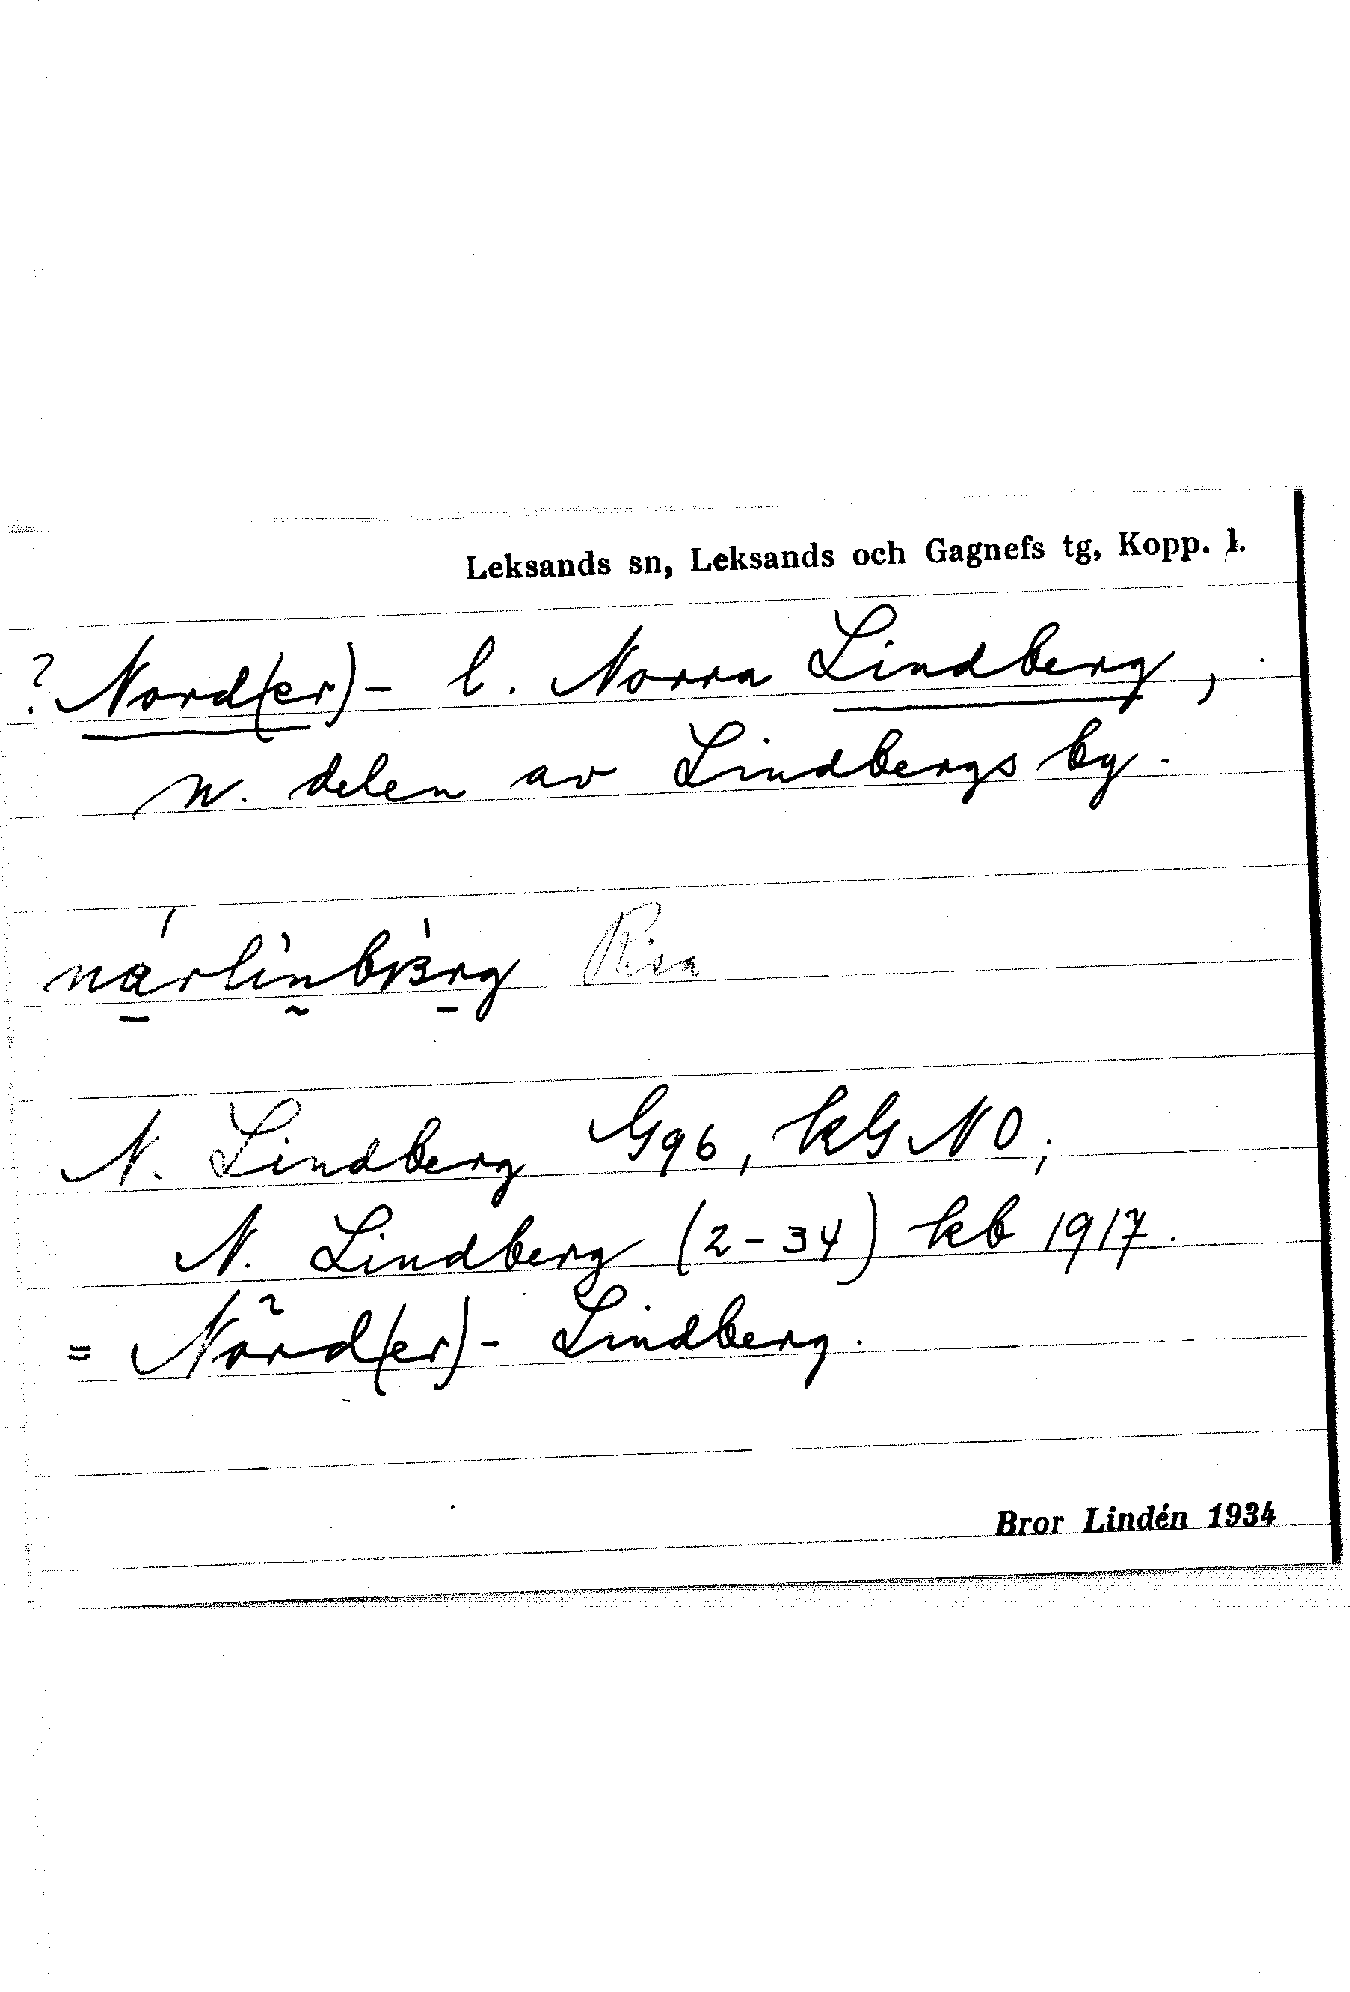 Leksands sn, Leksands och Gagnefs tg, Kopp. l.
? Nord(er)- l. Norra Lindberg,
n. delen av Lindbergs by.
Risa
N. Lindberg G96, kG NO;
N. Lindberg (2-34) kb 1917.
= Nord(er)- Lindberg.
Bror Lindén 1934